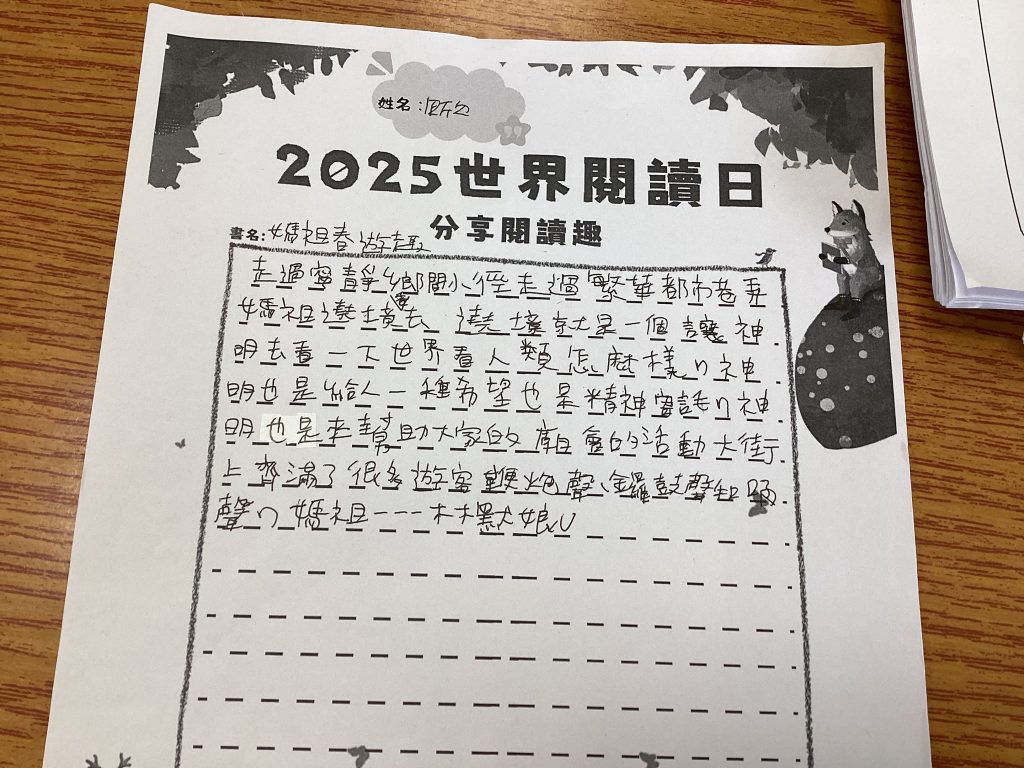 姓名:
2025世界閱讀日
分享閱讀趣
書名:媽祖春遊趣
走過寧靜鄉間小徑走過繁華都市巷弄
媽祖遶境去 遶境就是一個讓神
明去看一下世界看人類怎麼樣,神
明也是給人一種希望也是精神寄託,神
明也是來幫助大家的 廟會的活動大街
上擠滿了很多遊客鞭炮聲、鑼鼓聲和
聲,媽祖---林默娘。